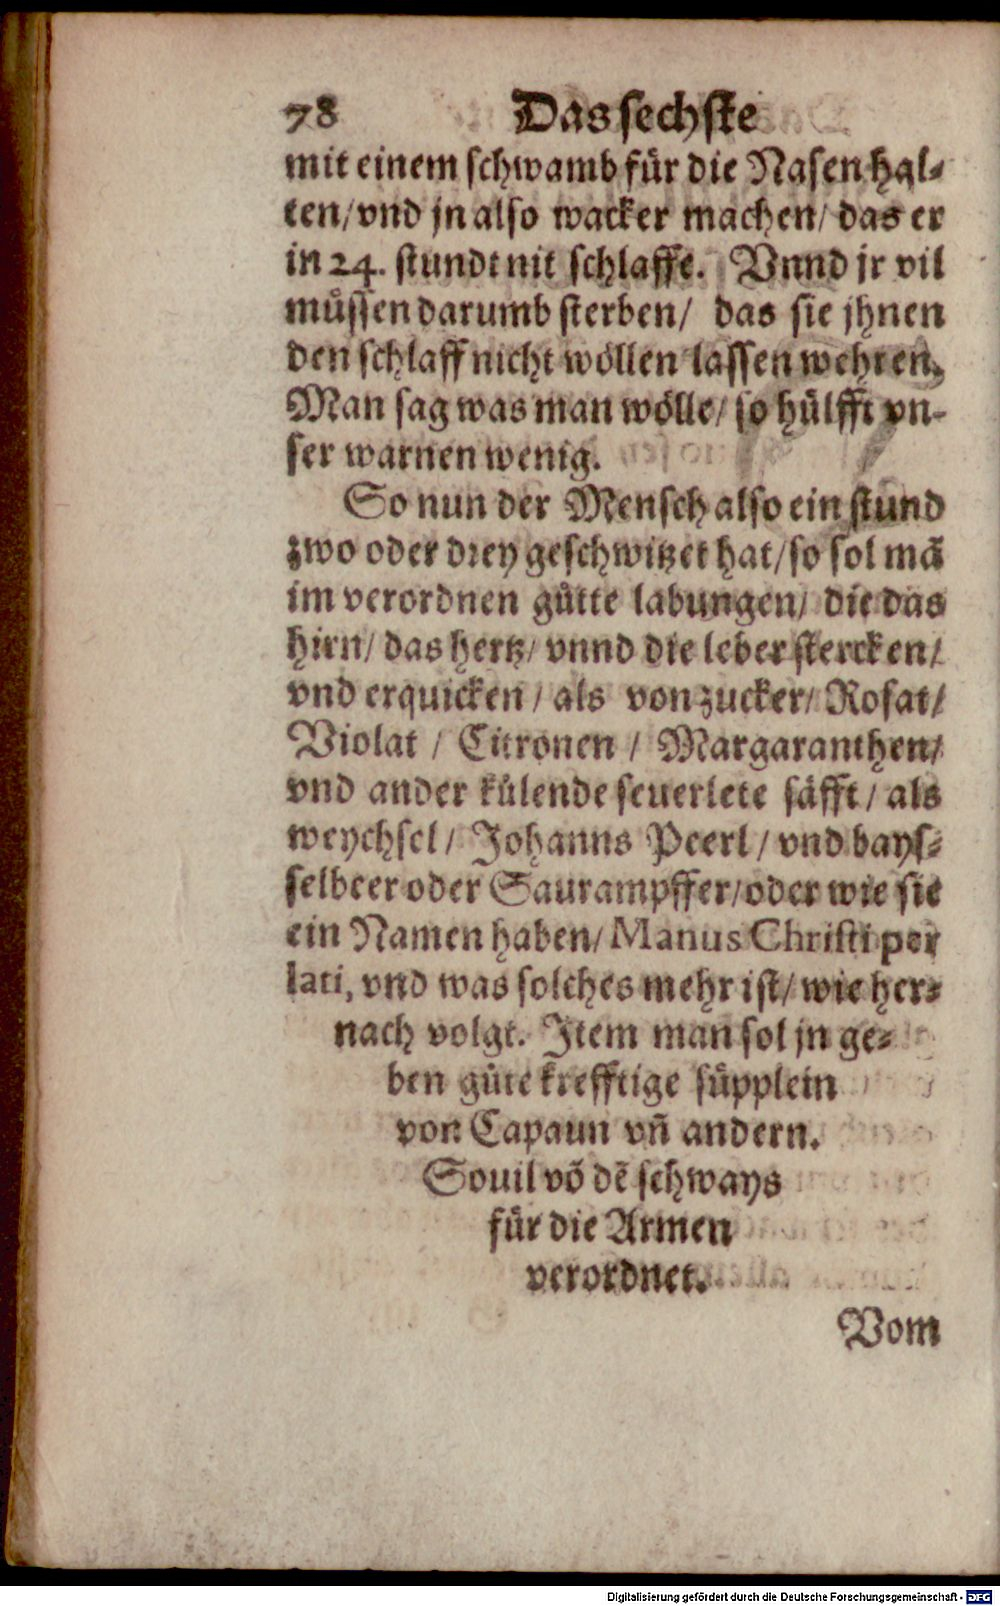 78 Das sechste
mit einem schwamb für die Nasen hal-
ten/ vnd jn also wacker machen/ das er
in 24. stundt nit schlaffe. Vnnd jr vil
müssen darumb sterben/ das sie jhnen
den schlaff nicht wöllen lassen wehren.
Man sag was man wölle/ so hülfft vn-
ser warnen wenig.
So nun der Mensch also ein stund
zwo oder drey geschwitzet hat/ so sol mã
im verordnen gůtte labungen/ die das
hirn/ das hertz/ vnnd die leber stercken/
vnd erquicken/ als von zucker/ Rosat/
Violat/ Citronen/ Margaranthen/
vnd ander külende seuerlete säfft/ als
weychsel/ Johanns Peerl/ vnd bays-
selbeer oder Saurampffer/ oder wie sie
ein Namen haben/ Manus Christi per
lati, vnd was solches mehr ist/ wie her-
nach volgt. Item man sol jn ge-
ben gůte krefftige süpplein
von Capaun vñ andern.
Souil võ dẽ schways
für die Armen
verordnet.
Vom
Digitalisierung gefördert durch die Deutsche Forschungsgemeinschaft - DFG